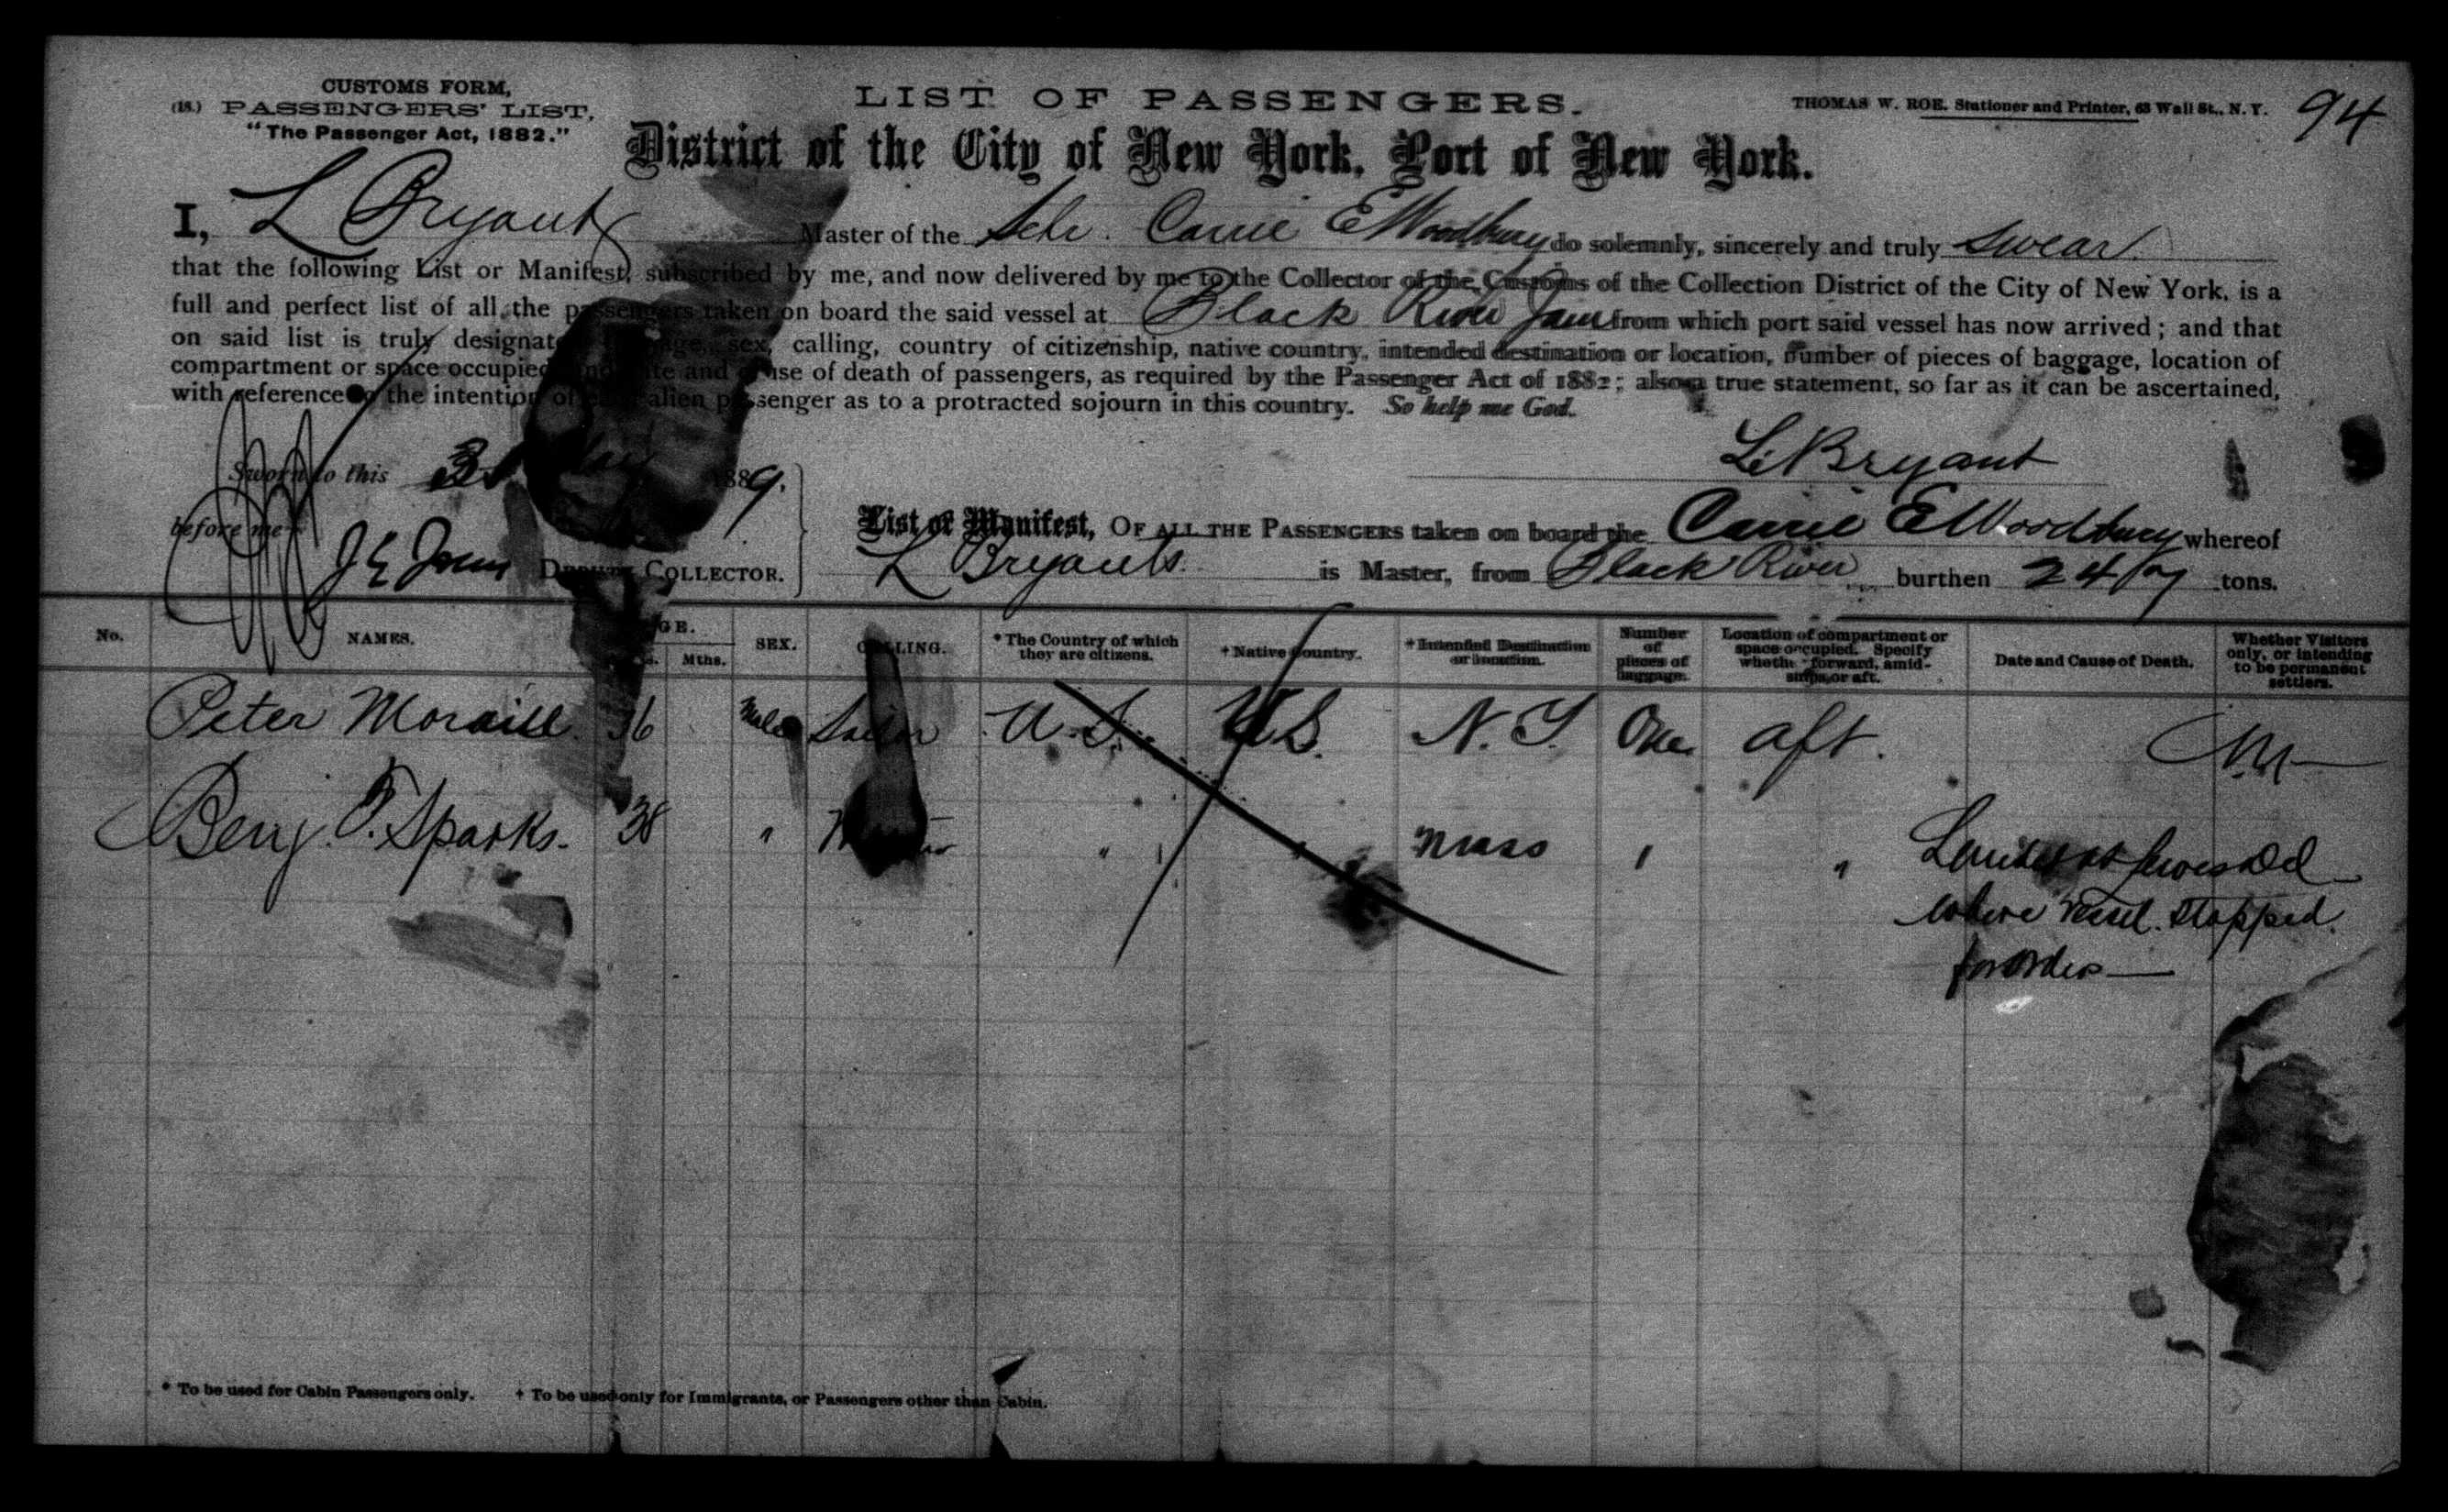 CUSTOMS FORM,
(18.) PASSENGERS' LIST,
"The Passenger Act, 1882."
LIST OF PASSENGERS.
THOMAS W. ROE. Stationer and Printer, 63 Wall St., N. Y.
94
District of the City of New York, Port of New York.
I, L Bryant Master of the Schr. Carrie E Woodbury do solemnly, sincerely and truly swear
that the following List or Manifest, subscribed by me, and now delivered by me to the Collector of the Customs of the Collection District of the City of New York, is a
full and perfect list of all the passengers taken on board the said vessel at Black River Jam from which port said vessel has now arrived; and that
on said list is truly designated age, sex, calling, country of citizenship, native country, intended destination or location, number of pieces of baggage, location of
compartment or space occupied and date and cause of death of passengers, as required by the Passenger Act of 1882; also a true statement, so far as it can be ascertained,
with reference to the intention of alien passenger as to a protracted sojourn in this country. So help me God.
Sworn to this 1889.
L. Bryant
before me
DEPUTY COLLECTOR.
List or Manifest, OF ALL THE PASSENGERS taken on board the Carrie E Woodbury whereof
L Bryant is Master, from Black River burthen 247 tons.
No. NAMES. AGE. SEX. CALLING. *The Country of which they are citizens. †Native Country. †Intended Destination or location. Number of pieces of baggage. Location of compartment or space occupied. Specify whether forward, amidships, or aft. Date and Cause of Death. Whether Visitors only, or intending to be permanent settlers.
Mths.
Peter 36 Male Sailor U.S. U.S. N.Y. One aft.
Benj. F. Sparks. 38 " " " Mass " "
Landed at Lewes Del
where vessel stopped
for orders—
* To be used for Cabin Passengers only. † To be used only for Immigrants, or Passengers other than Cabin.